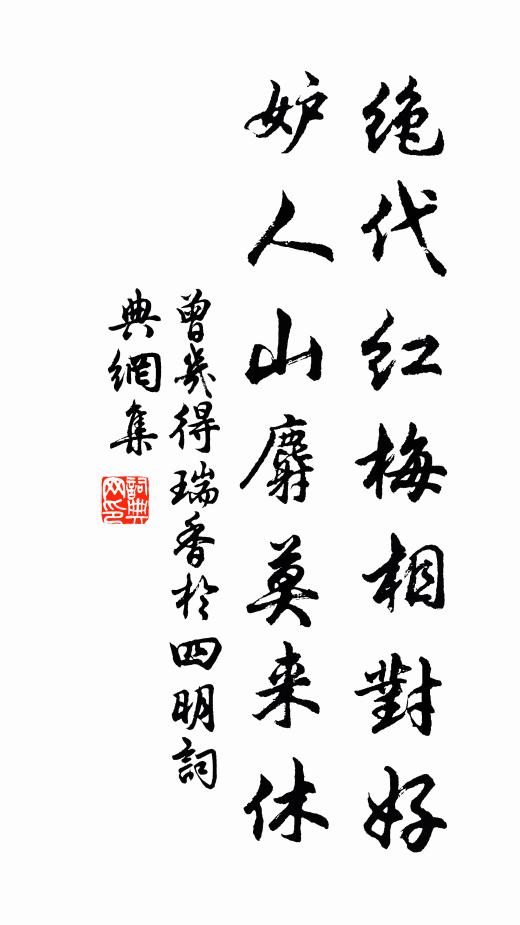 绝代红梅相對好
妒人山麝莫来休
曾幾得瑞香於四明詞
典網集
詞典
网印